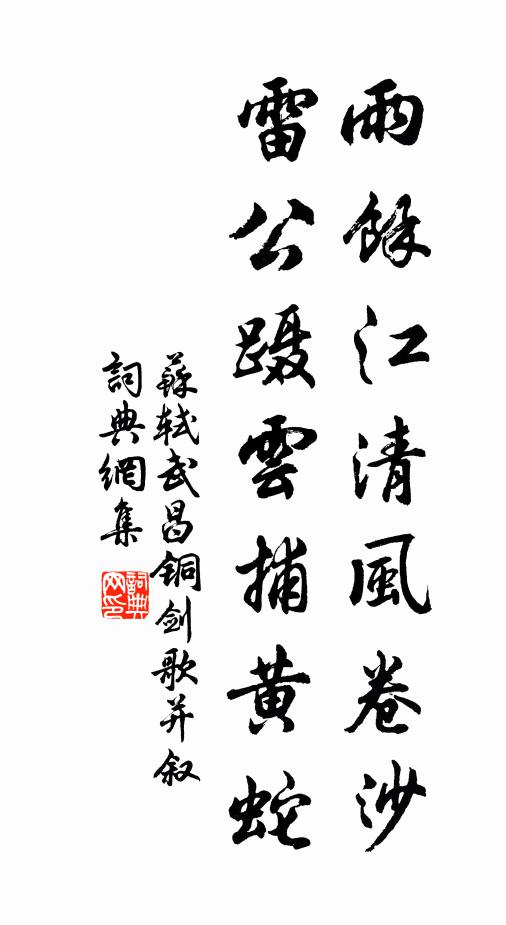 雨餘江清風卷沙
雷公蹑雲捕黄蛇
蘇轼武昌铜剑歌并叙
詞典網集
詞典网印